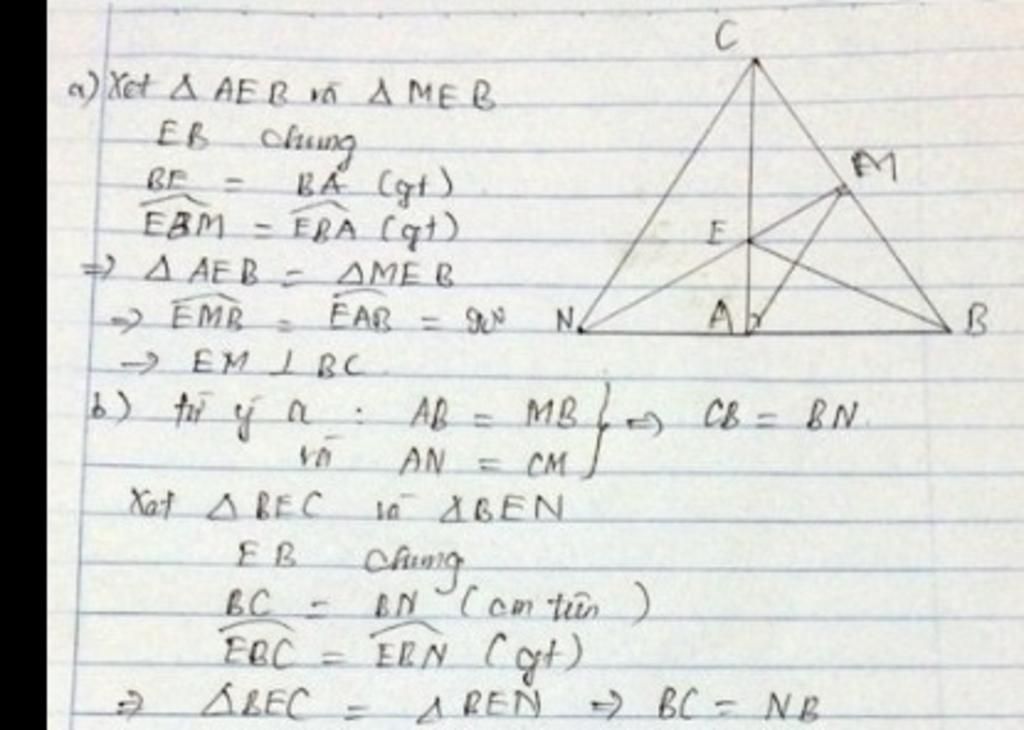 C
a) Xét Δ AEB và Δ MEB
EB chung
BE = BA (gt)
M
EBM = EBA (gt)
E
⇒ Δ AEB = ΔMEB
⇒ EMB = EAB = 90°
N A B
→ EM ⊥ BC
b) từ ý a : AB = MB } ⇒ CB = BN
và AN = CM
Xét Δ BEC và ΔBEN
EB chung
BC = BN (cm trên)
EBC = EBN (gt)
⇒ ΔBEC = ΔBEN ⇒ BC = NB